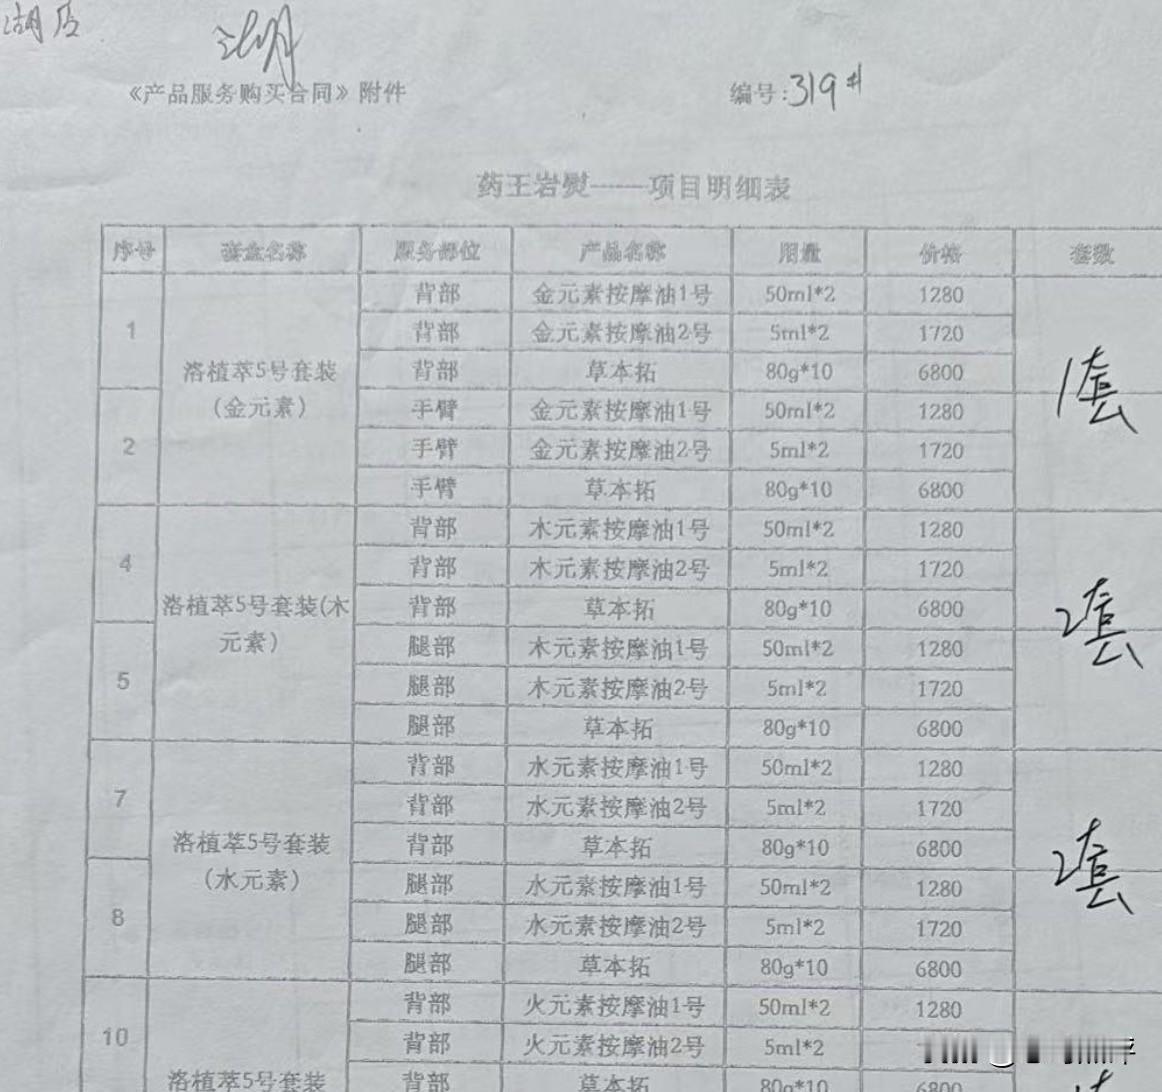 湖店
《产品服务购买合同》附件 编号:319#
药王岩熨——项目明细表
序号 套盒名称 服务部位 产品名称 用量 价格 套数
1 背部 金元素按摩油1号 50ml*2 1280
背部 金元素按摩油2号 5ml*2 1720
洛植萃5号套装 背部 草本拓 80g*10 6800 1套
(金元素) 手臂 金元素按摩油1号 50ml*2 1280
2 手臂 金元素按摩油2号 5ml*2 1720
手臂 草本拓 80g*10 6800
背部 木元素按摩油1号 50ml*2 1280
4 背部 木元素按摩油2号 5ml*2 1720
洛植萃5号套装(木 背部 草本拓 80g*10 6800 2套
元素) 腿部 木元素按摩油1号 50ml*2 1280
5 腿部 木元素按摩油2号 5ml*2 1720
腿部 草本拓 80g*10 6800
背部 水元素按摩油1号 50ml*2 1280
7 背部 水元素按摩油2号 5ml*2 1720
洛植萃5号套装 背部 草本拓 80g*10 6800 2套
(水元素) 腿部 水元素按摩油1号 50ml*2 1280
8 腿部 水元素按摩油2号 5ml*2 1720
腿部 草本拓 80g*10 6800
背部 火元素按摩油1号 50ml*2 1280
10 背部 火元素按摩油2号 5ml*2
洛植萃5号套装 背部 草本拓 80g*10 6800